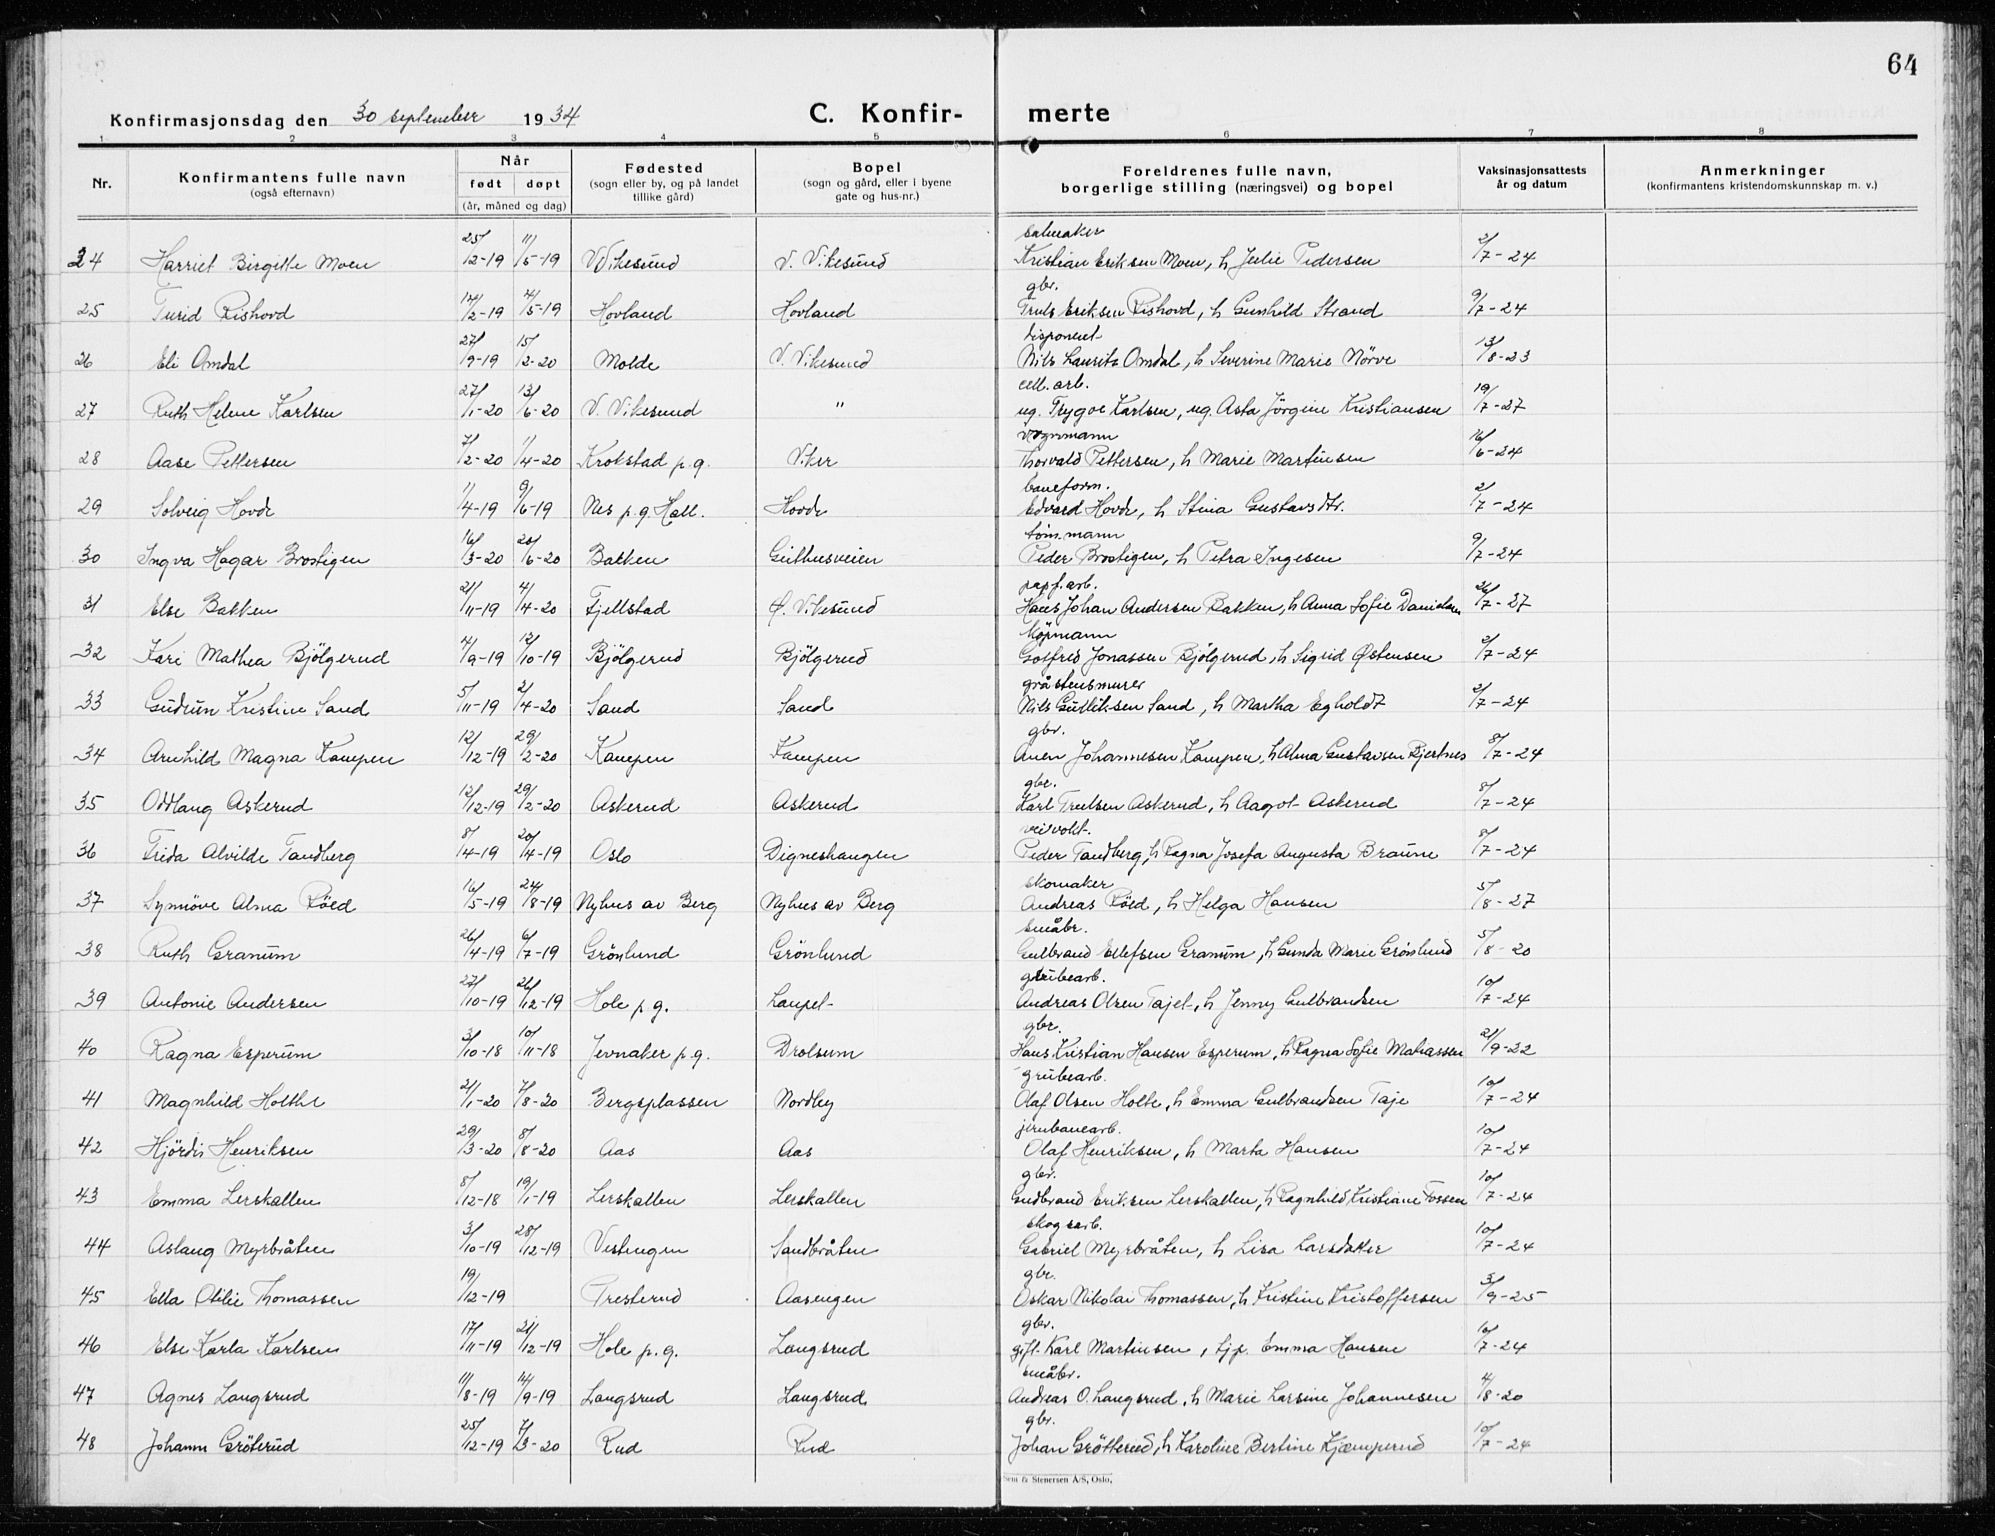 64
Konfirmasjonsdag den 30 september 1934 C. Konfir- merte
1 2 3 4 5 6 7 8
Nr. Konfirmantens fulle navn (også efternavn) Når født døpt (år, måned og dag) Fødested (sogn eller by, og på landet tillike gård) Bopel (sogn og gård, eller i byene gate og hus-nr.) Foreldrenes fulle navn, borgerlige stilling (næringsvei) og bopel Vaksinasjonsattests år og datum Anmerkninger (konfirmantens kristendomskunnskap m. v.)
salmaker
24 Harriet Birgitte Moen 25/12-19 11/5-19 V. Vikesund V. Vikesund Kristian Eriksen Moen, h Julie Pedersen 2/7-24
gbr.
25 Turid Rishovd 17/2-19 4/5-19 Hovland Hovland Truls Eriksen Rishovd, h Gunhild Strand 9/7-24
disponent
26 Eli Omdal 27/9-19 15/2-20 Molde V. Vikesund Nils Laurits Omdal, h Severine Marie Nörve 13/8-23
cell. arb.
27 Ruth Helene Karlsen 27/1-20 13/6-20 V. Vikesund " ug. Trygve Karlsen, ug. Asta Jörgine Kristiansen 19/7-27
vognmann
28 Aase Pettersen 7/2-20 1/4-20 Krokstad p.g. Viker Thorvald Pettersen, h Marie Martinsen 16/6-24
baneform.
29 Solveig Hovde 1/4-19 9/6-19 Nes p.g. Hall. Hovde Edvard Hovde, h Stina Gustavsdtr. 2/7-24
töm.mann
30 Ingva Hagar Brostigen 16/3-20 20/6-20 Bakken Geithusveien Peder Brostigen, h Petra Ingesen 9/7-24
papf.arb.
31 Else Bakken 21/11-19 4/4-20 Fjellstad Ø. Vikesund Hans Johan Andersen Bakken, h Anna Sofie Danielsen 26/7-27
kjöpmann
32 Kari Mathea Bjölgerud 4/9-19 12/10-19 Bjölgerud Bjölgerud Gotfred Jonassen Bjölgerud, h Sigrid Østensen 2/7-24
gråstensmurer
33 Gudrun Kristine Sand 5/11-19 2/4-20 Sand Sand Nils Gulliksen Sand, h Martha Egholdt 2/7-24
gbr.
34 Arnhild Magna Kampen 12/12-19 29/2-20 Kampen Kampen Anen Johannesen Kampen, h Alma Gustavsen Bjertnes 8/7-24
gbr.
35 Oddlaug Askerud 12/12-19 29/2-20 Askerud Askerud Karl Truelsen Askerud, h Aagot Askerud 8/7-24
veivokt.
36 Frida Alvilde Tandberg 8/4-19 20/4-19 Oslo Digneshaugen Peder Tandberg, h Ragna Josefa Augusta Braüne 8/7-24
skomaker
37 Synnöve Alma Röed 16/5-19 24/8-19 Nyhus av Berg Nyhus av Berg Andreas Röed, h Helga Hansen 5/8-27
småbr.
38 Ruth Granum 26/4-19 6/7-19 Grönlund Grönlund Gulbrand Ellefsen Granum, h Gunda Marie Grönlund 5/8-20
grubearb.
39 Antonie Andersen 27/10-19 26/12-19 Hole p.g. Laupet Andreas Olsen Tajet, h Jenny Gulbrandsen 10/7-24
gbr.
40 Ragna Esperum 3/10-18 10/11-18 Jevnaker p.g. Drolsum Hans Kristian Hansen Esperum, h Ragna Sofie Matiassen 21/9-22
grubearb.
41 Magnhild Holthe 2/1-20 7/8-20 Bergsplassen Nordby Olaf Olsen Holte, h Emma Gulbrandsen Taje 10/7-24
jernbanearb.
42 Hjördis Henriksen 29/3-20 8/8-20 Aas Aas Olaf Henriksen, h Marta Hansen 10/7-24
gbr.
43 Emma Lerskallen 8/12-18 19/1-19 Lerskallen Lerskallen Gudbrand Eriksen Lerskallen, h Ragnhild Kristiane Fossen 10/7-24
skogsarb.
44 Aslaug Myrbråten 3/10-19 28/12-19 Vestengen Sandbråten Gabriel Myrbråten, h Lisa Larsdatter 10/7-24
gbr.
45 Ella Otilie Thomassen 19/12-19 Tresterud Aasengen Oskar Nikolai Thomassen, h Kristine Kristoffersen 3/9-25
gbr.
46 Else Karla Karlsen 17/11-19 21/12-19 Hole p.g. Langsrud gift Karl Martinsen, tjp. Emma Hansen 10/7-24
småbr.
47 Agnes Langsrud 11/8-19 14/9-19 Langsrud Langsrud Andreas O. Langsrud, h Marie Larsine Johannesen 4/8-20
gbr.
48 Johann Gröterud 25/12-19 7/3-20 Rud Rud Johan Grötterud, h Karoline Bertine Kjæmperud 10/7-24
Sem & Stenersen A/S, Oslo,